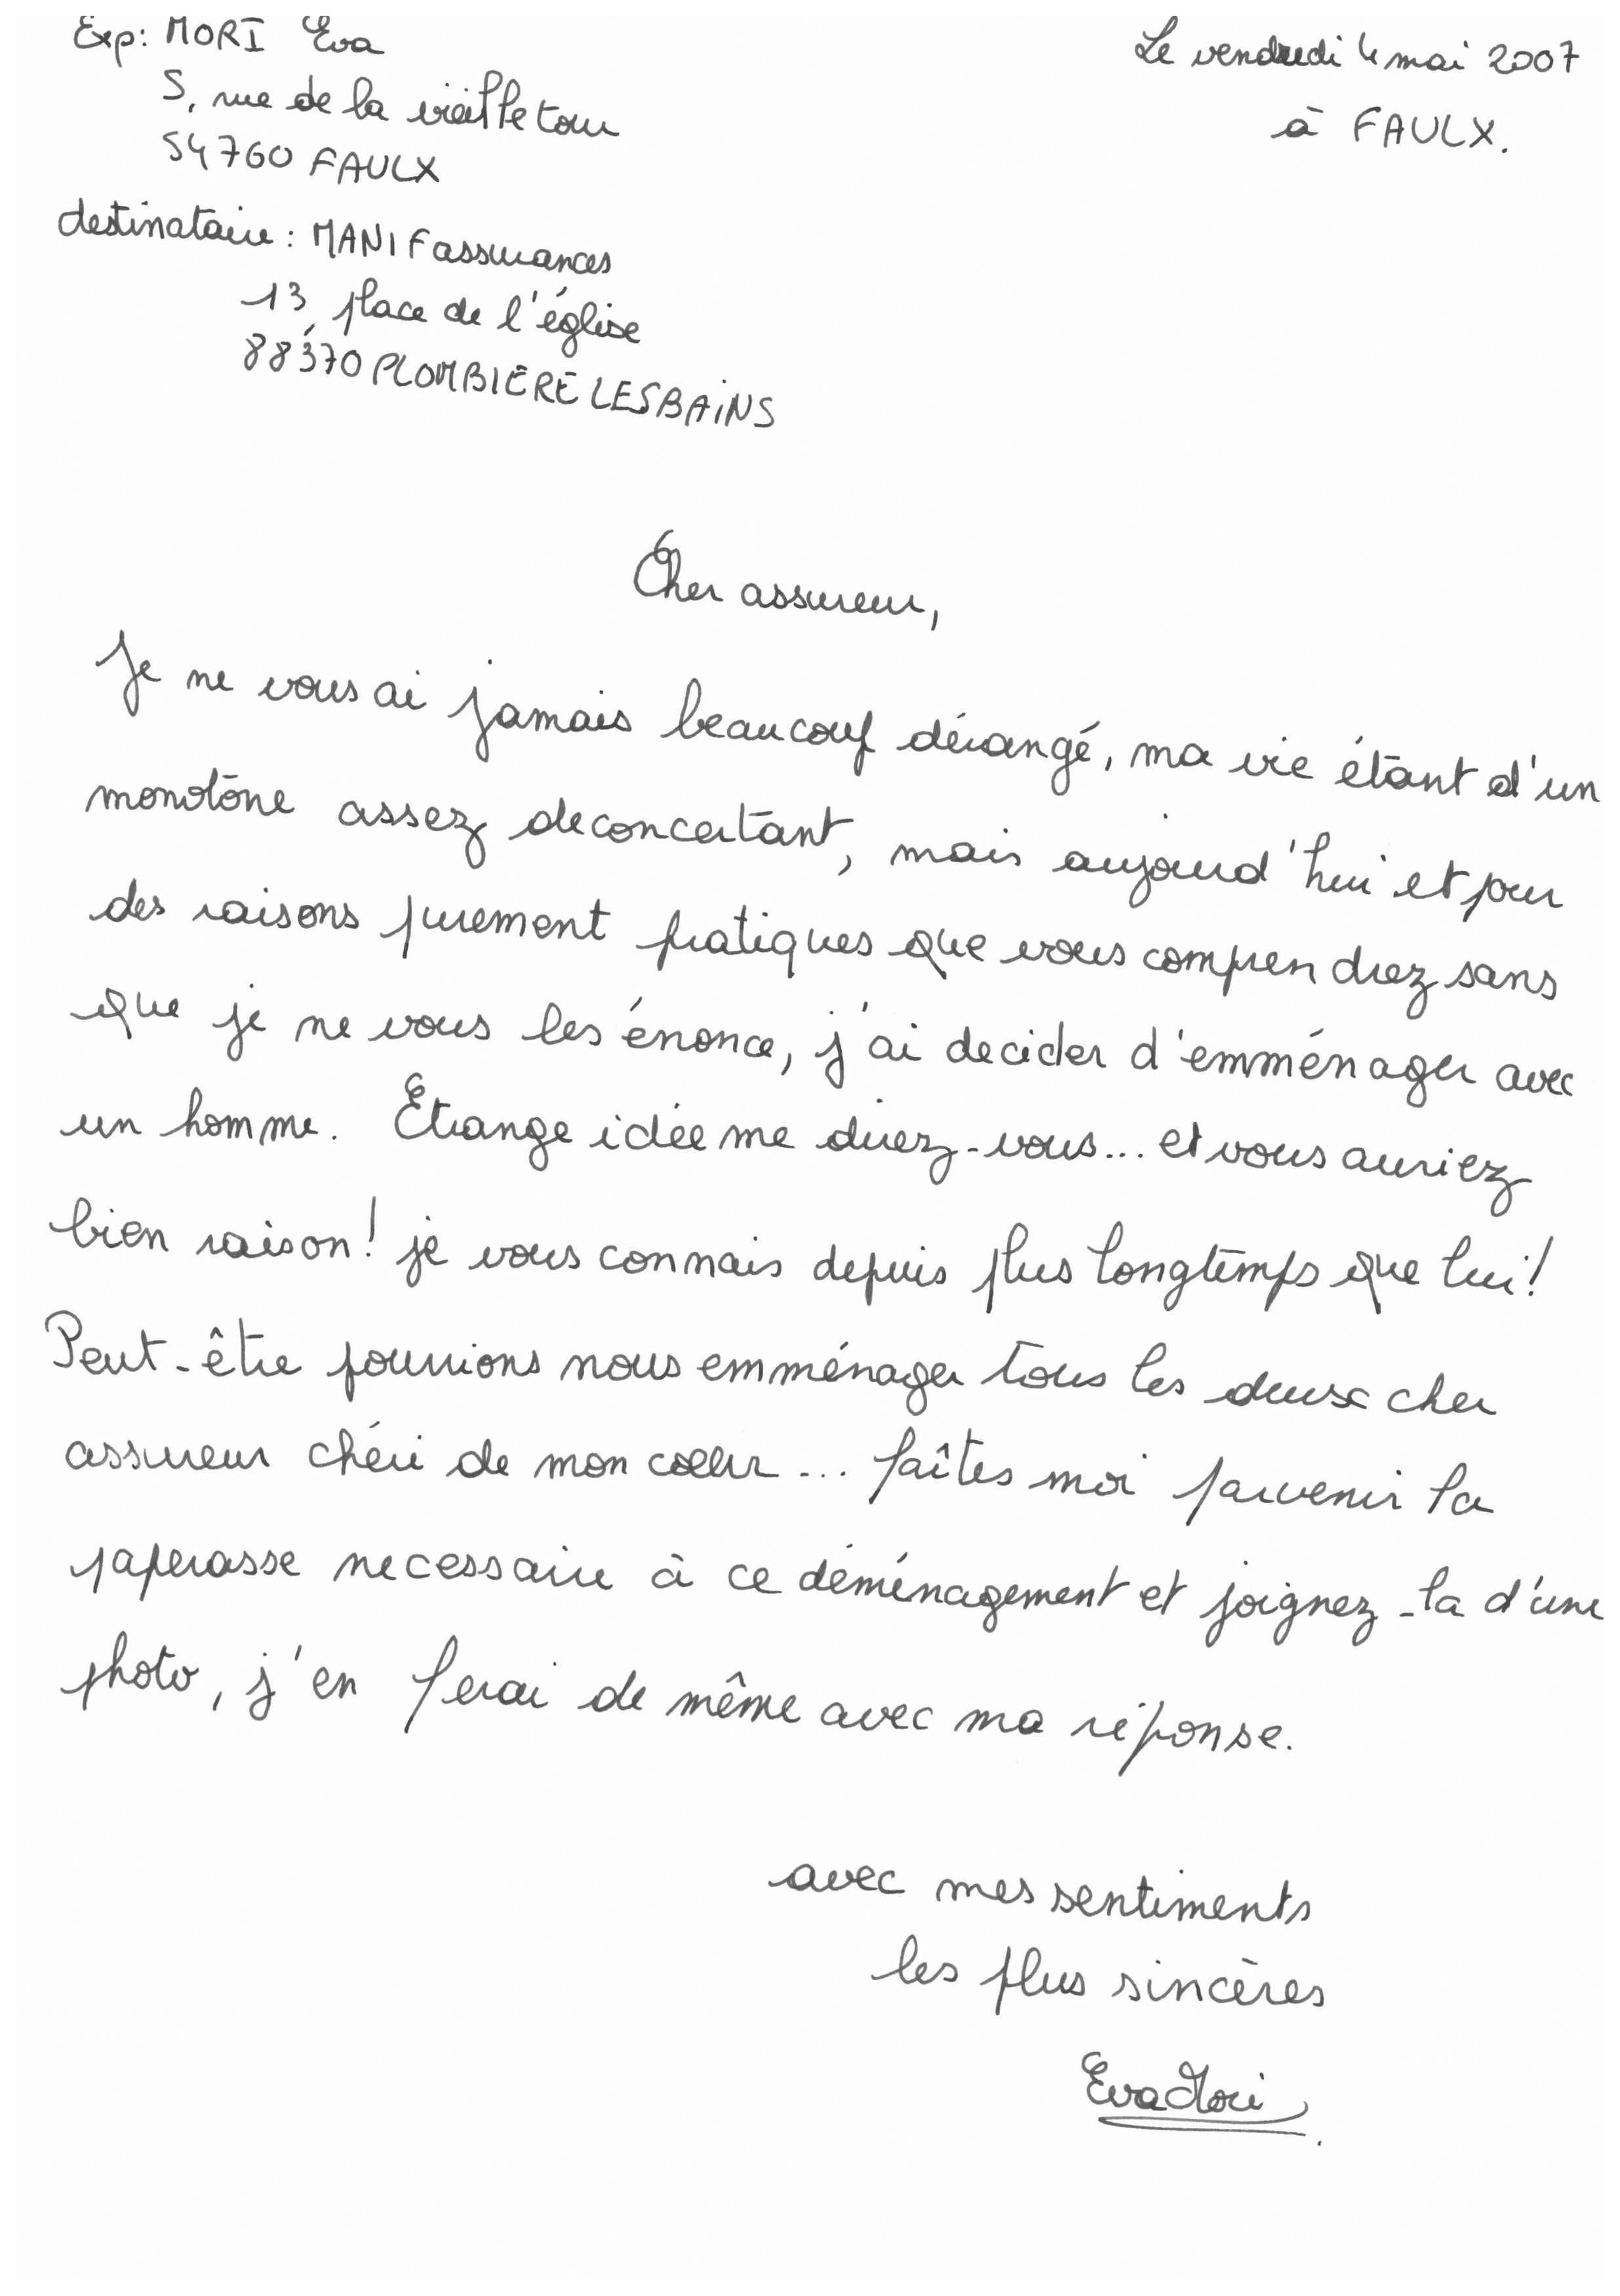 Exp: MORI Eva
5, rue de la vieille tour
54760 FAULX
Le vendredi 4 mai 2007
à FAULX.
destinataire : MANIFassurances
13, place de l'église
88370 PLOMBIERE LES BAINS
Cher assureur,
Je ne vous ai jamais beaucoup dérangé, ma vie étant d'un
monotone assez deconcertant, mais aujourd'hui et pour
des raisons purement pratiques que vous comprendrez sans
que je ne vous les énonce, j'ai decider d'emménager avec
un homme. Etrange idée me direz-vous... et vous auriez
bien raison! je vous connais depuis plus longtemps que lui!
Peut-être pourrions nous emménager tous les deux cher
assureur chéri de mon coeur... faîtes moi parvenir la
paperasse necessaire à ce déménagement et joignez-la d'une
photo, j'en ferai de même avec ma réponse.
avec mes sentiments
les plus sincères
Eva Mori